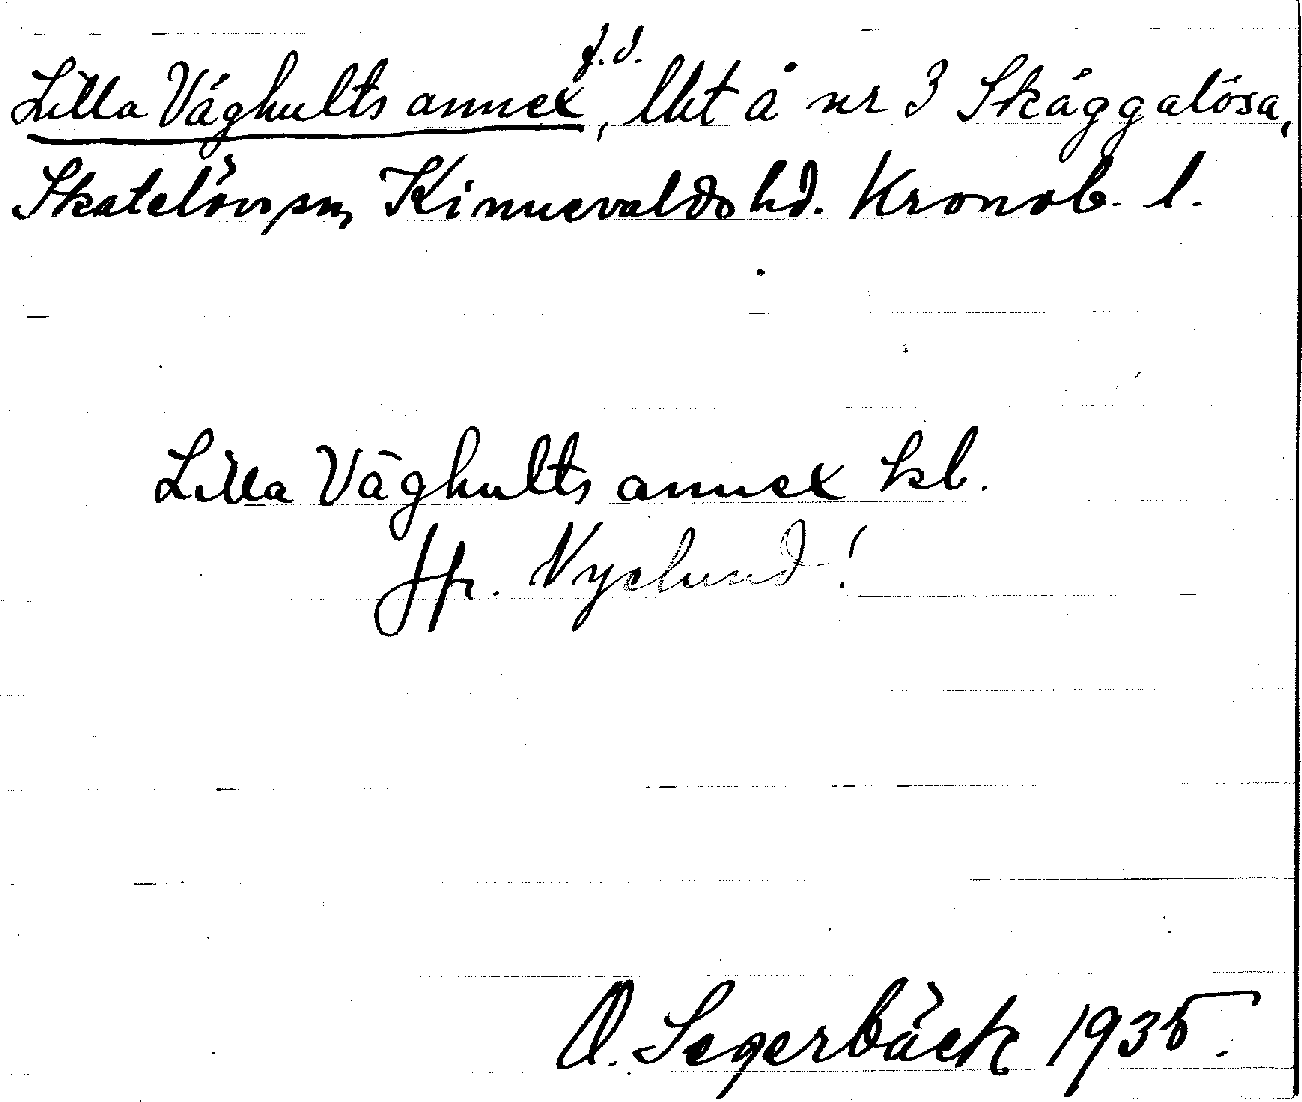 Lilla Våghults annex f.d., lht å nr 3 Skäggalösa,
Skatelövs sn, Kinnevalds hd. Kronob. l.
Lilla Våghults annex kb.
Jfr. Nyelund!
O. Segerbäck 1935.